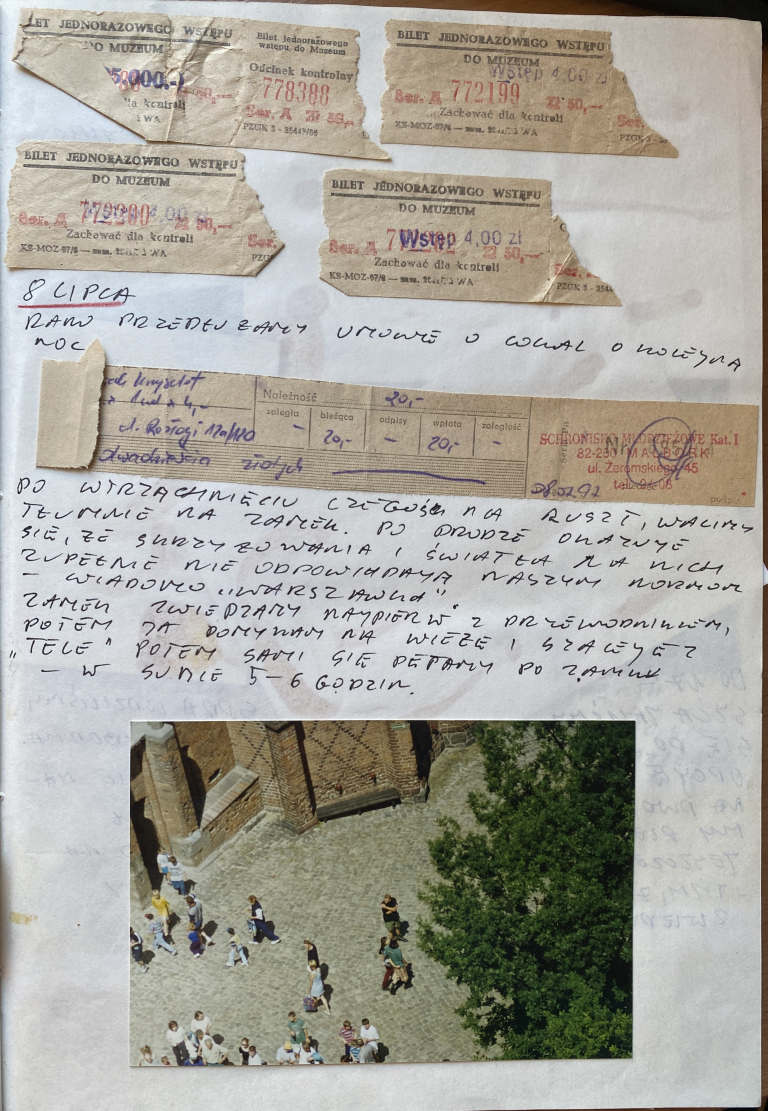 LET JEDNORAZOWEGO WSTĘPU
DO MUZEUM
5.000.-
50,—
dla kontroli
1 WA
Bilet jednorazowego
wstępu do Muzeum
Odcinek kontrolny
778388
Ser. A Zł 50,—
PZGK 3 - 35447/56
BILET JEDNORAZOWEGO WSTĘPU
DO MUZEUM
Wstęp 4,00 zł
Ser. A 772199 Zł 50,—
Zachować dla kontroli
KS-MOZ-07/6
WA
Ser.
PZGK 3 -
BILET JEDNORAZOWEGO WSTĘPU
DO MUZEUM
Ser. A 772200 4,00 zł Zł 50,—
Zachować dla kontroli
KS-MOZ-07/6
WA
Ser.
PZGK
BILET JEDNORAZOWEGO WSTĘPU
DO MUZEUM
Wstęp 4,00 zł
Ser. A Zł 50,—
Zachować dla kontroli
KS-MOZ-07/6
WA
Ser. A
PZGK 3 - 3544
8 LIPCA
RANO PRZEDŁUŻAMY UMOWĘ O LOKAL O KOLEJNĄ
NOC
Krzysztof
Należność 20,-
zaległa bieżąca odpisy wpłata zaległość
- 20,- - 20,- -
ul. Rozłogi
dwadzieścia złotych
Nr
SCHRONISKO MŁODZIEŻOWE Kat. I
82-200 MALBORK
ul. Żeromskiego 45
podpis
PO WTRZĄCHNIĘCIU CZEGOŚ NA RUSZT, WALIMY
TŁUMNIE NA ZAMEK. PO DRODZE OKAZUJE
SIĘ, ŻE SKRZYŻOWANIA I ŚWIATŁA NA NICH
ZUPEŁNIE NIE ODPOWIADAJĄ NASZYM NORMOM
- WIADOMO "WARSZAWKA"
ZAMEK ZWIEDZAMY NAJPIERW Z PRZEWODNIKIEM,
POTEM JA DOMYKAM NA WIEŻĘ I SZALEJĘ Z
"TELE" POTEM SAMI SIĘ PĘTAMY PO ZAMKU
- W SUMIE 5-6 GODZIN.